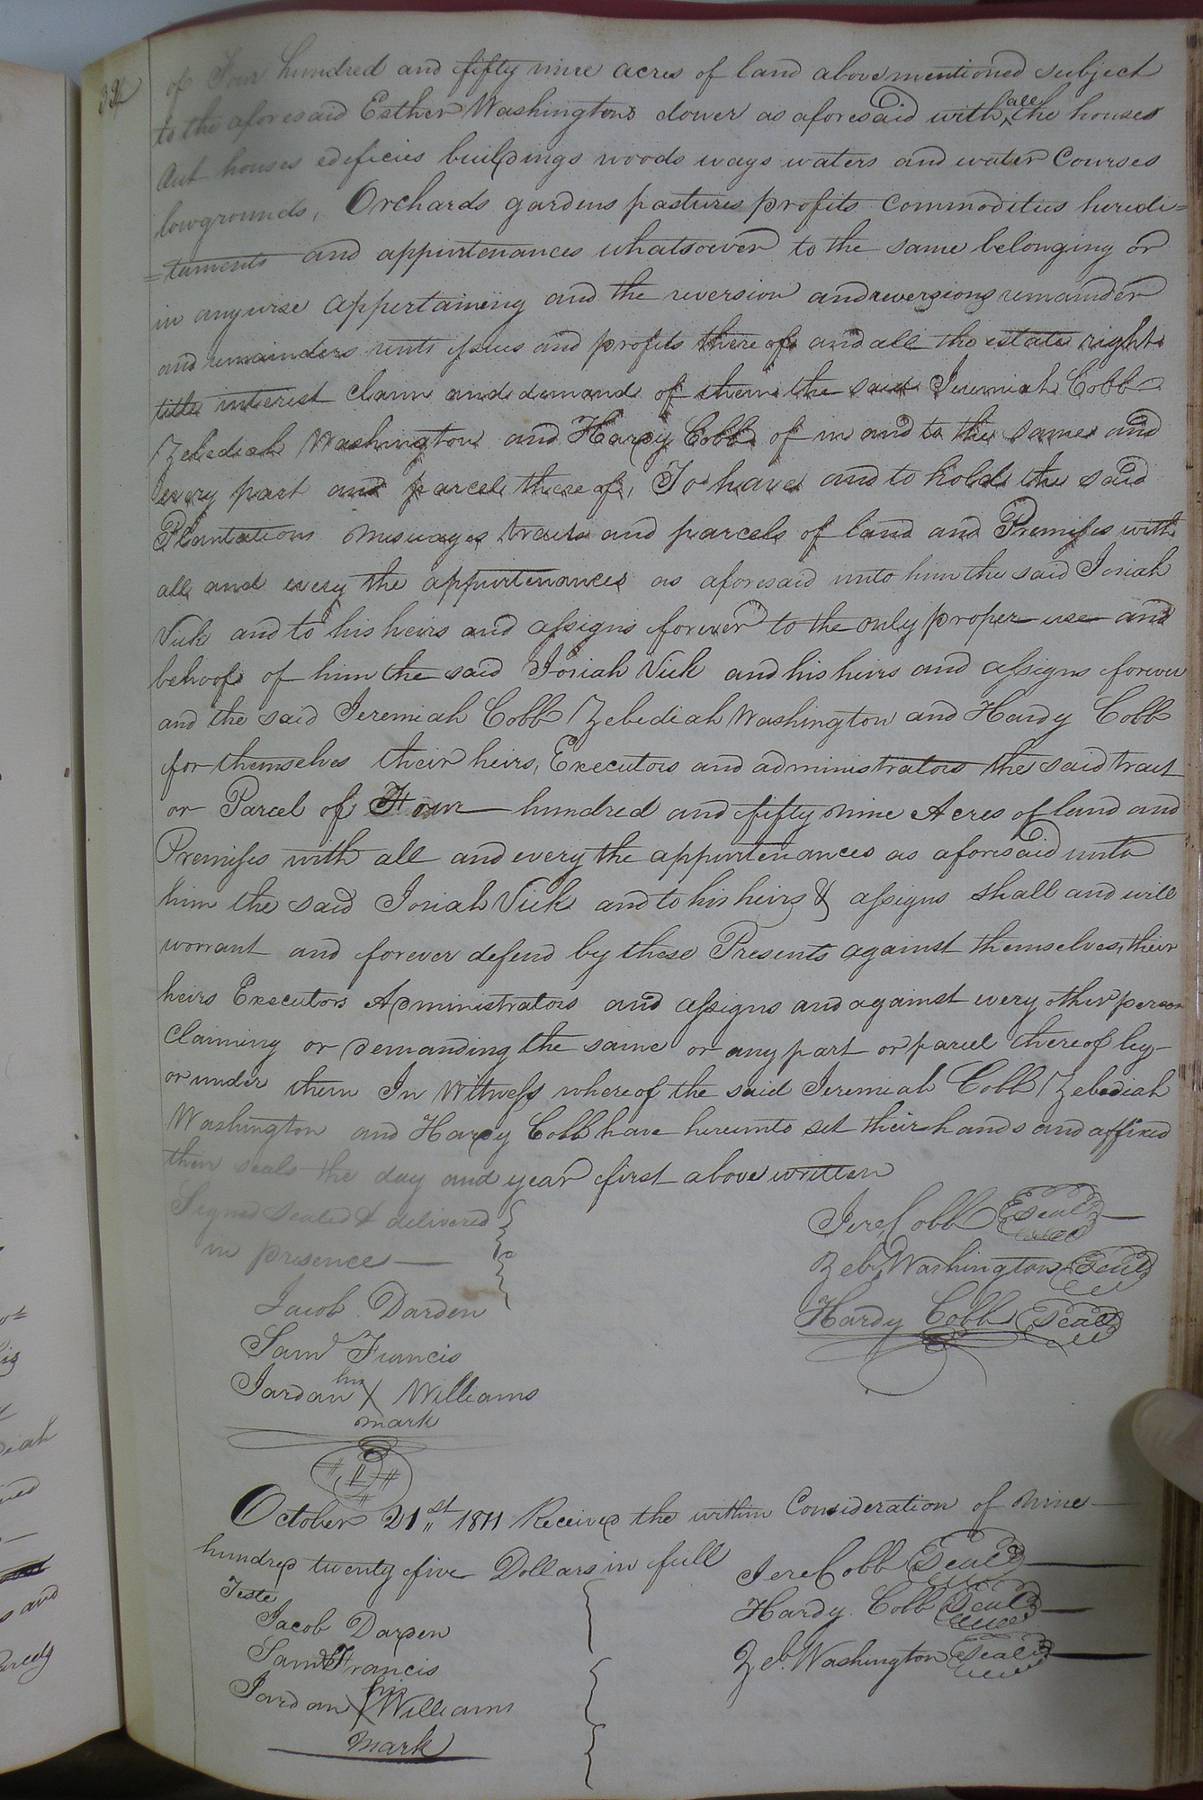 of Four hundred and fifty nine acres of land above mentioned subject
to the aforesaid Esther Washingtons dower as aforesaid with all the houses
Aut houses edeficies buildings woods ways waters and water Courses
lowgrounds, Orchards gardens pastures profits commodities heredi=
=taments and appurtenances whatsoever to the same belonging or
in anywise appertaining and the reversion and reversions remainder
and remainders rents issues and profits there of and all the estate right
title interest claim and demand of them the said Jeremiah Cobb
Zebediah Washington and Hardy Cobb of in and to the same and
every part and parcel there of, To have and to hold the said
Plantations messuages tracts and parcels of land and Premises with
all and every the appurtenances as aforesaid unto him the said Josiah
Vick and to his heirs and assigns forever to the only proper use and
behoof of him the said Josiah Vick and his heirs and assigns forever
and the said Jeremiah Cobb Zebediah Washington and Hardy Cobb
for themselves their heirs, Executors and administrators the said tract
or Parcel of Four hundred and fifty nine Acres of land and
Premises with all and every the appurtenances as aforesaid unto
him the said Josiah Vick and to his heirs & assigns shall and will
worrant and forever defend by these Presents against themselves, their
heirs Executors Administrators and assigns and against every other person
Claiming or demanding the same or any part or parcel thereof by
or under them In Witness whereof the said Jeremiah Cobb Zebediah
Washington and Hardy Cobb have hereunto set their hands and affixed
their seals the day and year first above written
Signed sealed & delivered
in presence
Jere Cobb Seal
Zeb. Washington Seal
Hardy Cobb Seal
Jacob Darden
Saml Francis
his
Jordan X Williams
mark
October 21st 1811 Received the within Consideration of nine
hundred twenty five Dollars in full
Jere Cobb Seal
Hardy Cobb Seal
Washington Seal
Teste
Jacob Darden
Saml Francis
his
Jordan X Williams
mark